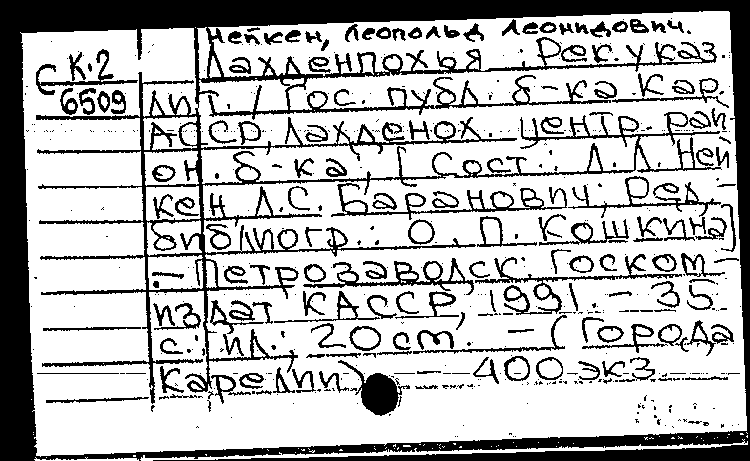 Нейкен, Леопольд Леонидович.
С К-2
6509
Лахденпохья : Рек. указ.
лит. / Гос. публ. б-ка Кар.
АССР, Лахденох. центр. рай-
он. б-ка; [Сост.: Л. Л. Ней-
кен, Л.С. Баранович; Ред.-
библиогр.: О. П. Кошкина]
. – Петрозаводск: Госком-
издат КАССР, 1991. – 35
с.: ил.; 20 cm. – (Города
Карелии) – 400 экз.